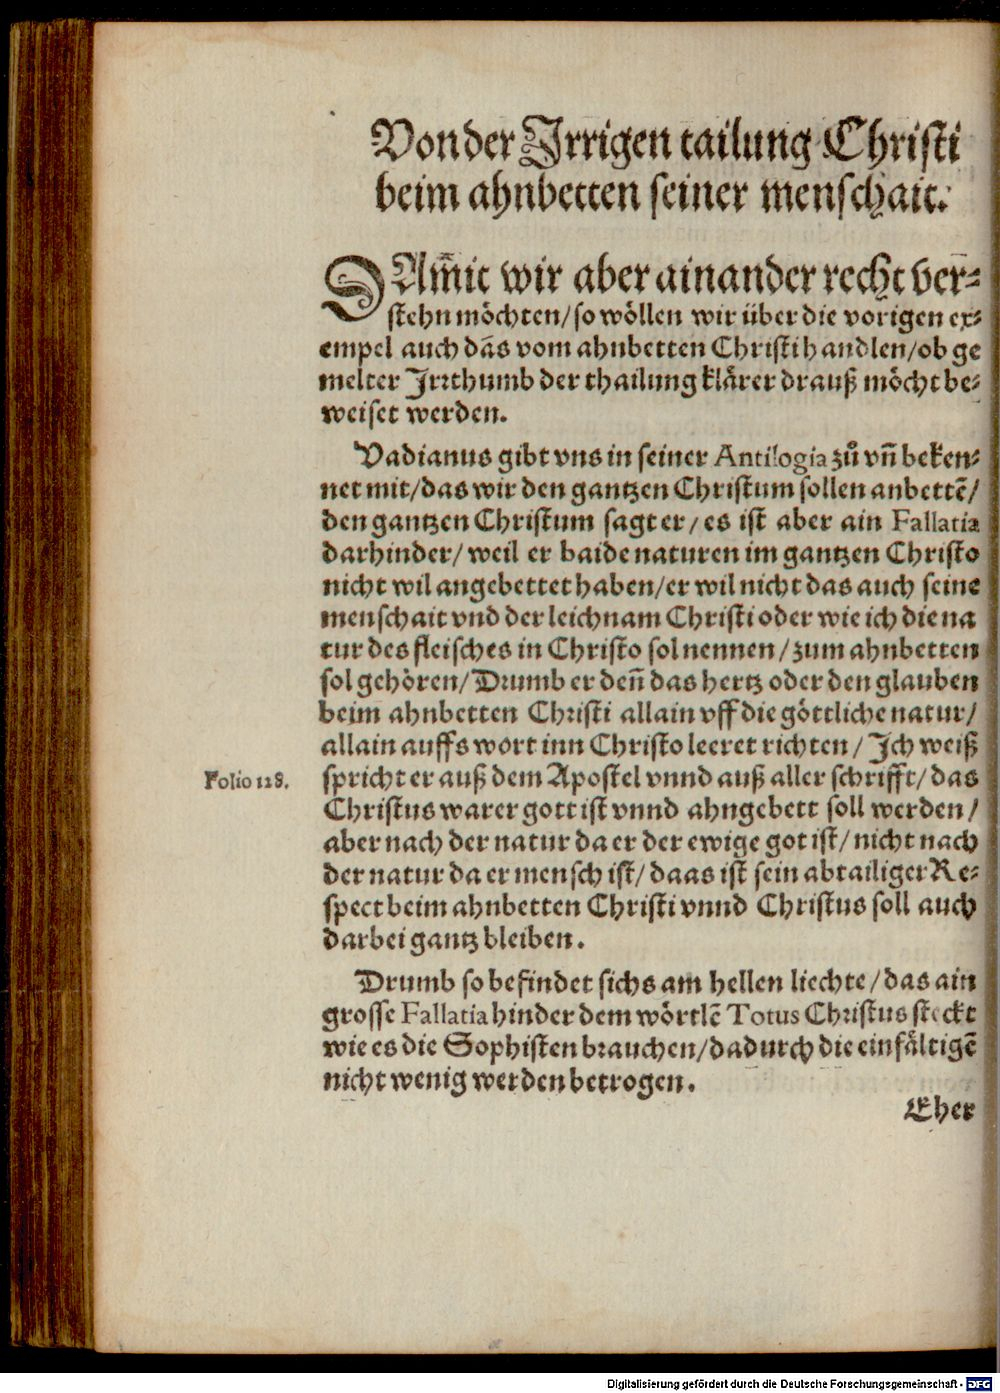 Von der Jrrigen tailung Christi
beim ahnbetten seiner menschait.
DAm̃it wir aber ainander recht ver-
stehn möchten/so wöllen wir über die vorigen ex-
empel auch dãs vom ahnbetten Christi handlen/ob ge
melter Jrrthumb der thailung klärer drauß möcht be-
weiset werden.
Vadianus gibt vns in seiner Antilogia zů vñ beken-
net mit/das wir den gantzen Christum sollen anbettẽ/
den gantzen Christum sagt er/es ist aber ain Fallatia
darhinder/weil er baide naturen im gantzen Christo
nicht wil angebettet haben/er wil nicht das auch seine
menschait vnd der leichnam Christi oder wie ich die na
tur des fleisches in Christo sol nennen/zum ahnbetten
sol gehören/Drumb er deñ das hertz oder den glauben
beim ahnbetten Christi allain vff die göttliche natur/
allain auffs wort inn Christo leeret richten/Jch weiß
Folio 128.
spricht er auß dem Apostel vnnd auß aller schrifft/das
Christus warer gott ist vnnd ahngebett soll werden/
aber nach der natur da er der ewige got ist/nicht nach
der natur da er mensch ist/daas ist sein abtailiger Re-
spect beim ahnbetten Christi vnnd Christus soll auch
darbei gantz bleiben.
Drumb so befindet sichs am hellen liechte/das ain
grosse Fallatia hinder dem wörtlẽ Totus Christus steckt
wie es die Sophisten brauchen/dadurch die einfältigẽ
nicht wenig werden betrogen.
Eher
Digitalisierung gefördert durch die Deutsche Forschungsgemeinschaft - DFG